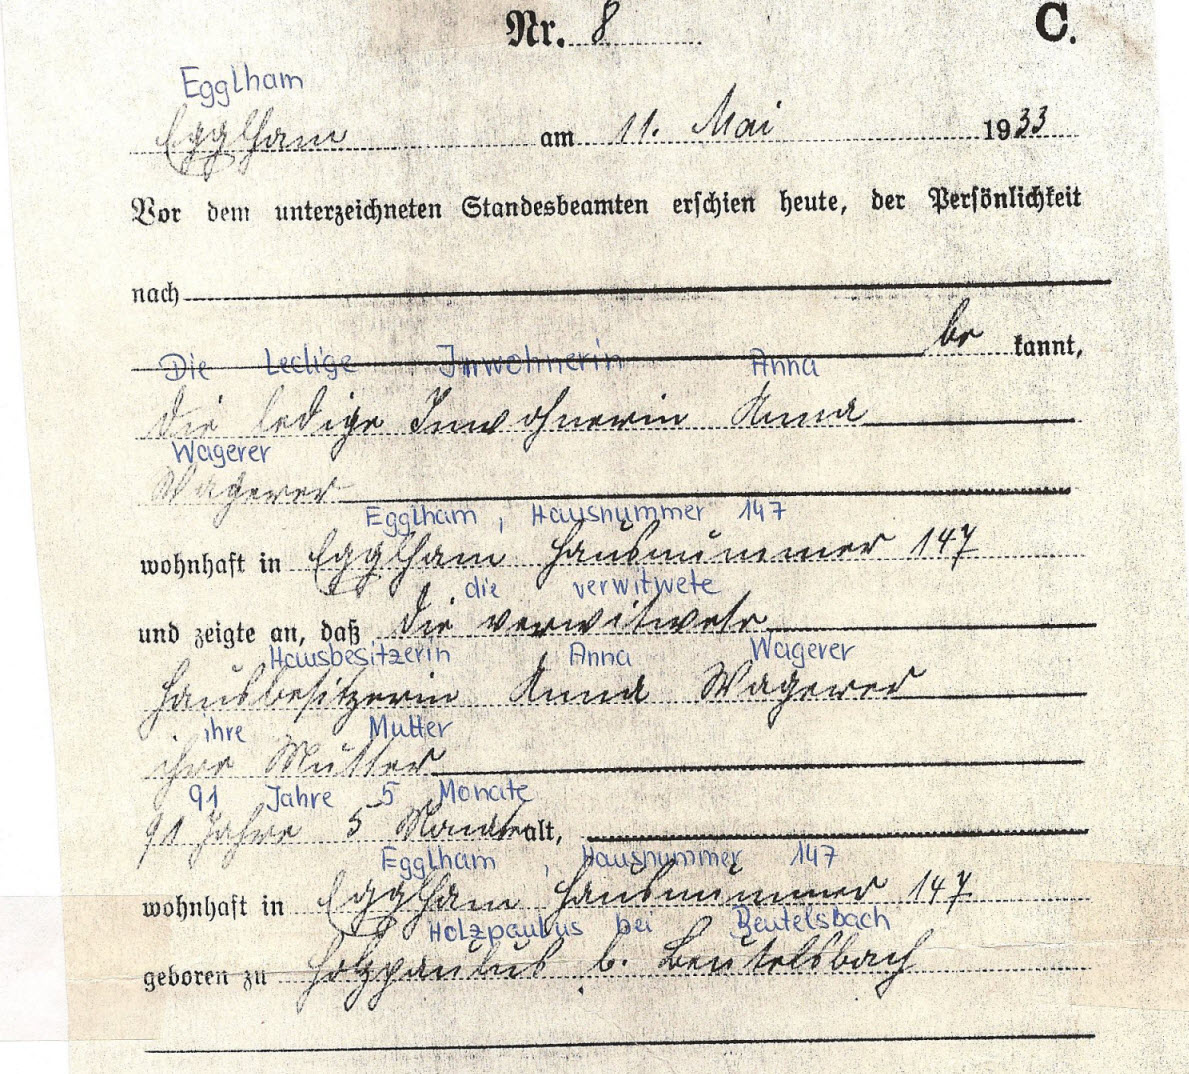 Nr. 8 C.
Egglham
Egglham am 11. Mai 1933
Vor dem unterzeichneten Standesbeamten erschien heute, der Persönlichkeit
nach
be kannt,
Die Ledige Inwohnerin Anna
die ledige Inwohnerin Anna
Wagerer
Wagerer
Egglham , Hausnummer 147
wohnhaft in Egglham Hausnummer 147
die verwitwete
und zeigte an, daß die verwitwete
Hausbesitzerin Anna Wagerer
Hausbesitzerin Anna Wagerer
ihre Mutter
ihre Mutter
91 Jahre 5 Monate
91 Jahre 5 Monate alt,
Egglham , Hausnummer 147
wohnhaft in Egglham Hausnummer 147
Holzpaulus bei Beutelsbach
geboren zu Holzpaulus b. Beutelsbach